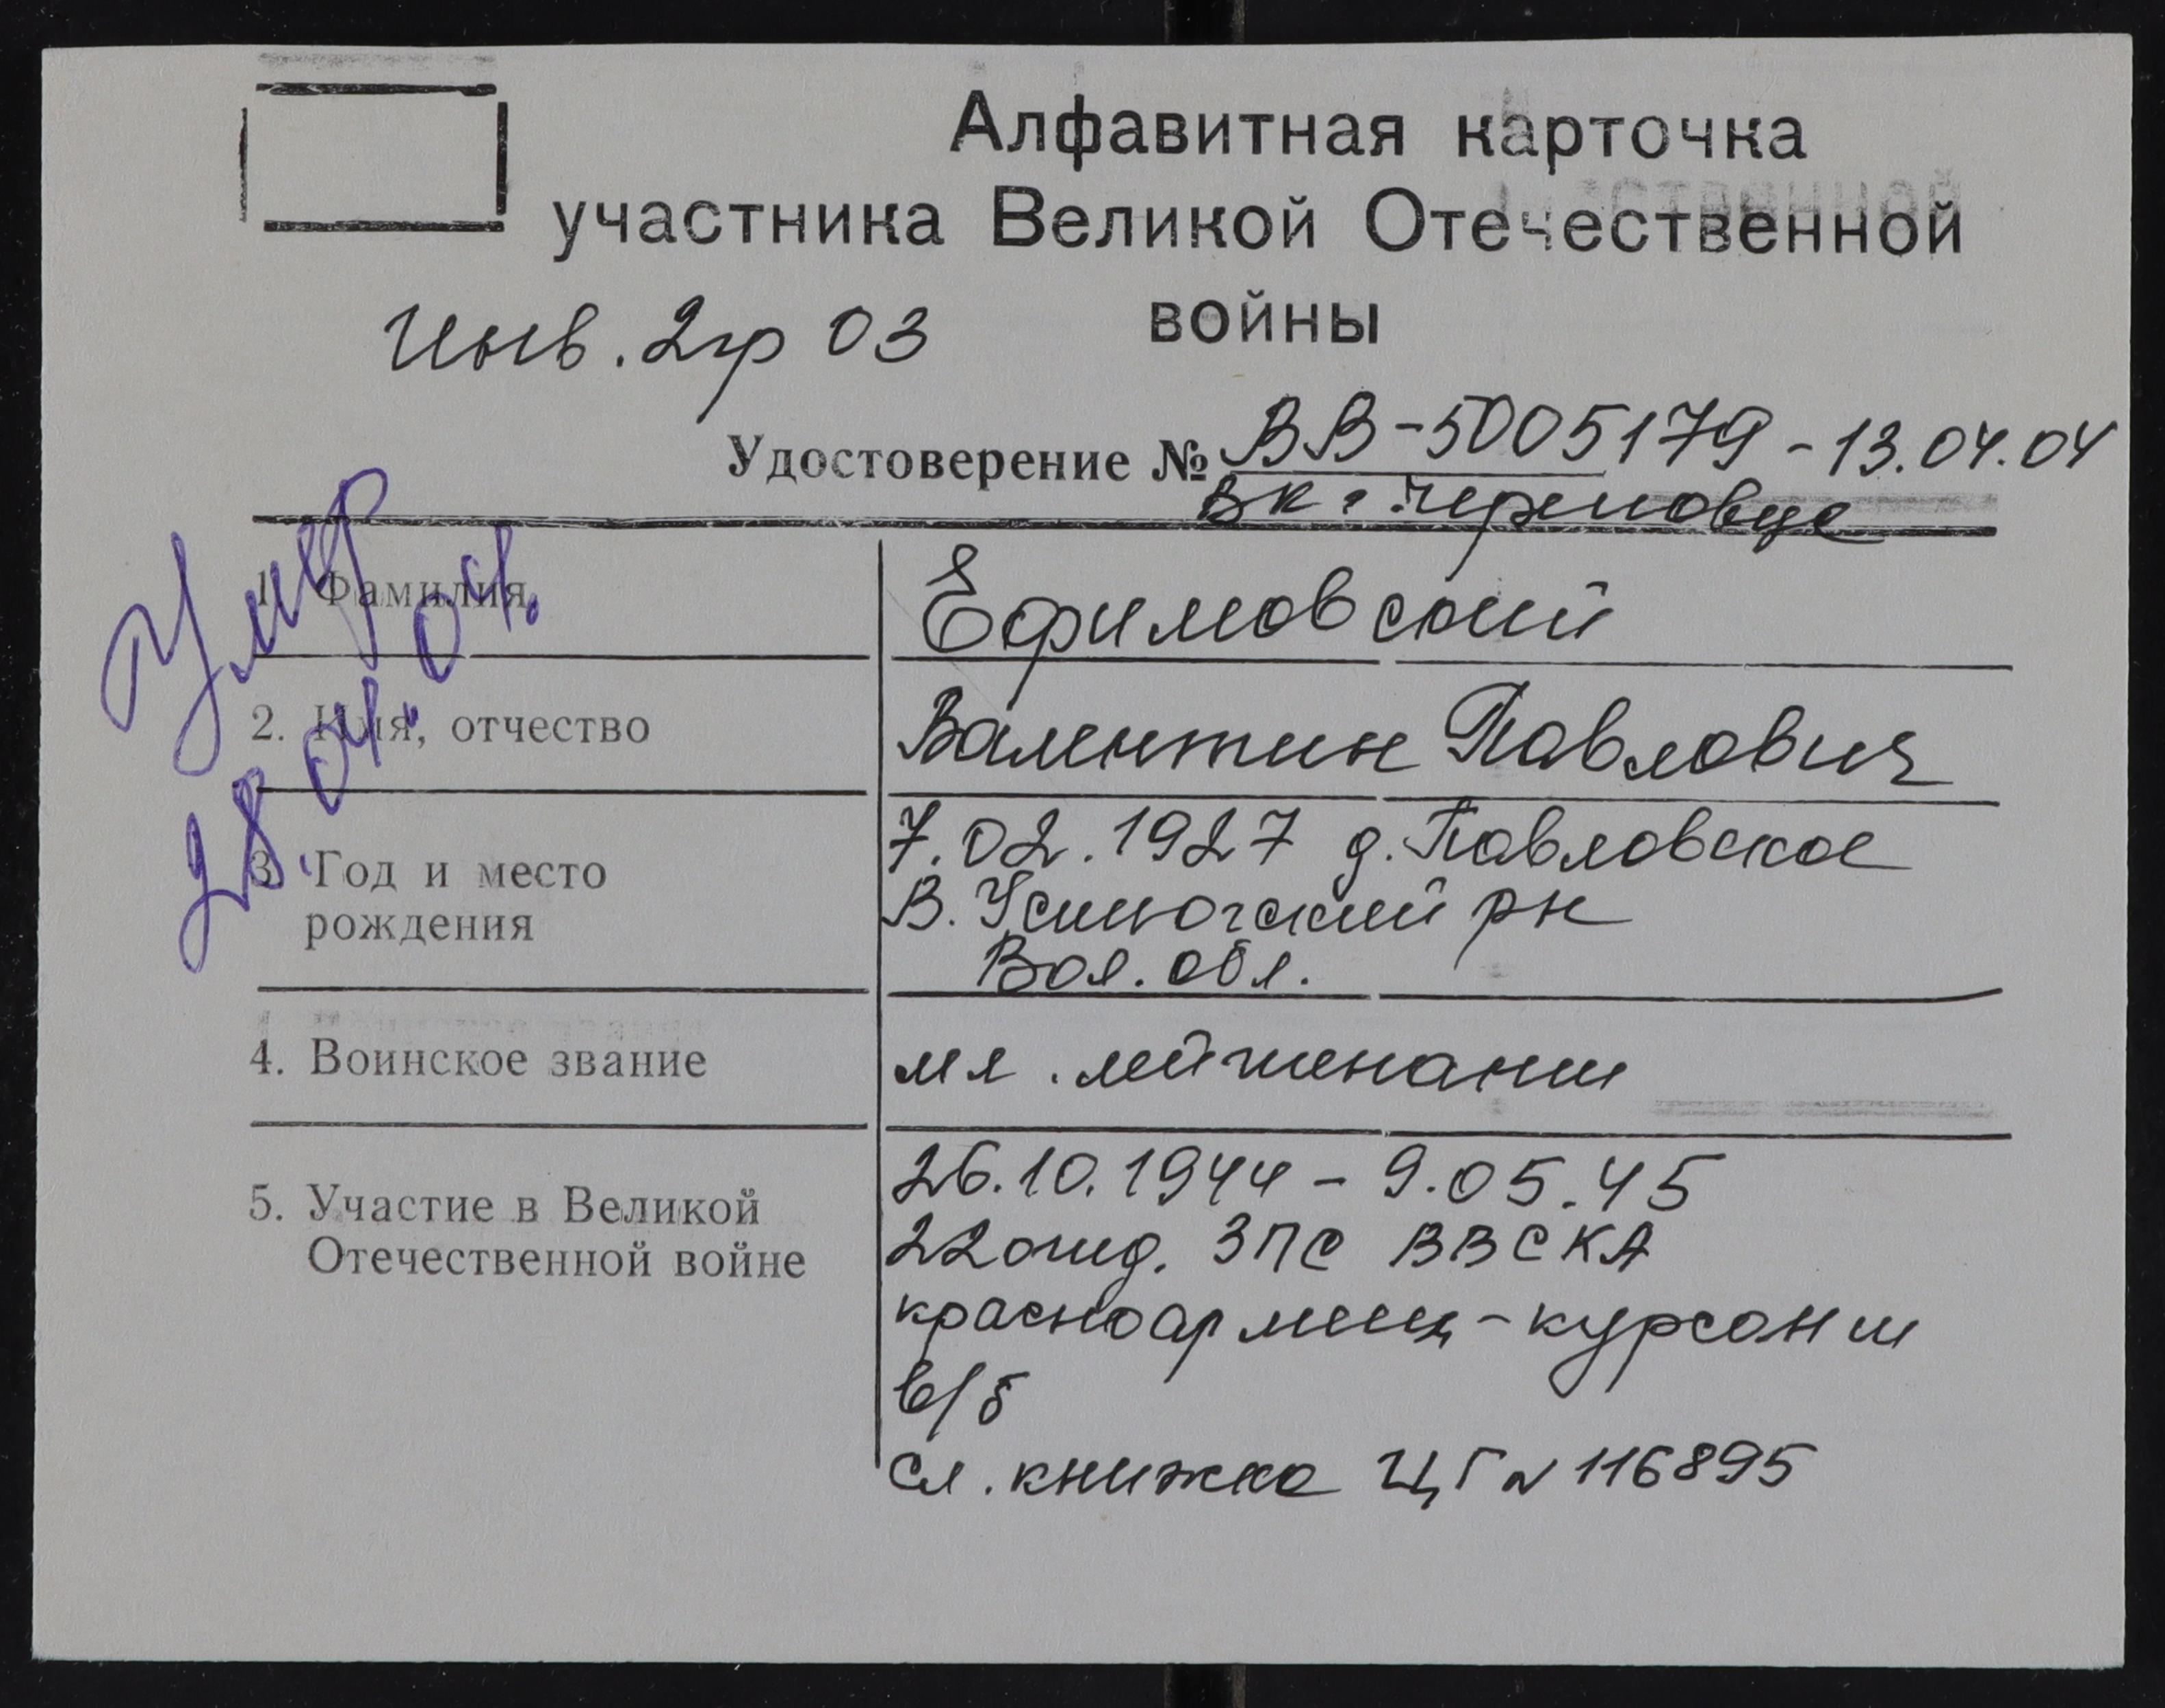 Алфавитная карточка
участника Великой Отечественной
войны
инв. 2гр 03
Удостоверение № ВВ-5005179-13.04.04
ВК г. Череповце
Умер
28.04.04.
1. Фамилия
Ефимовский
2. Имя, отчество
Валентин Павлович
3. Год и место
рождения
7.02.1927 д. Павловское
В. Устюгский рн
Вол. обл.
4. Воинское звание
мл. лейтенант
5. Участие в Великой
Отечественной войне
26.10.1944 - 9.05.45
22 отд. ЗПС ВВС КА
красноармеец-курсант
в/б
сл. книжка ЦГ № 116895